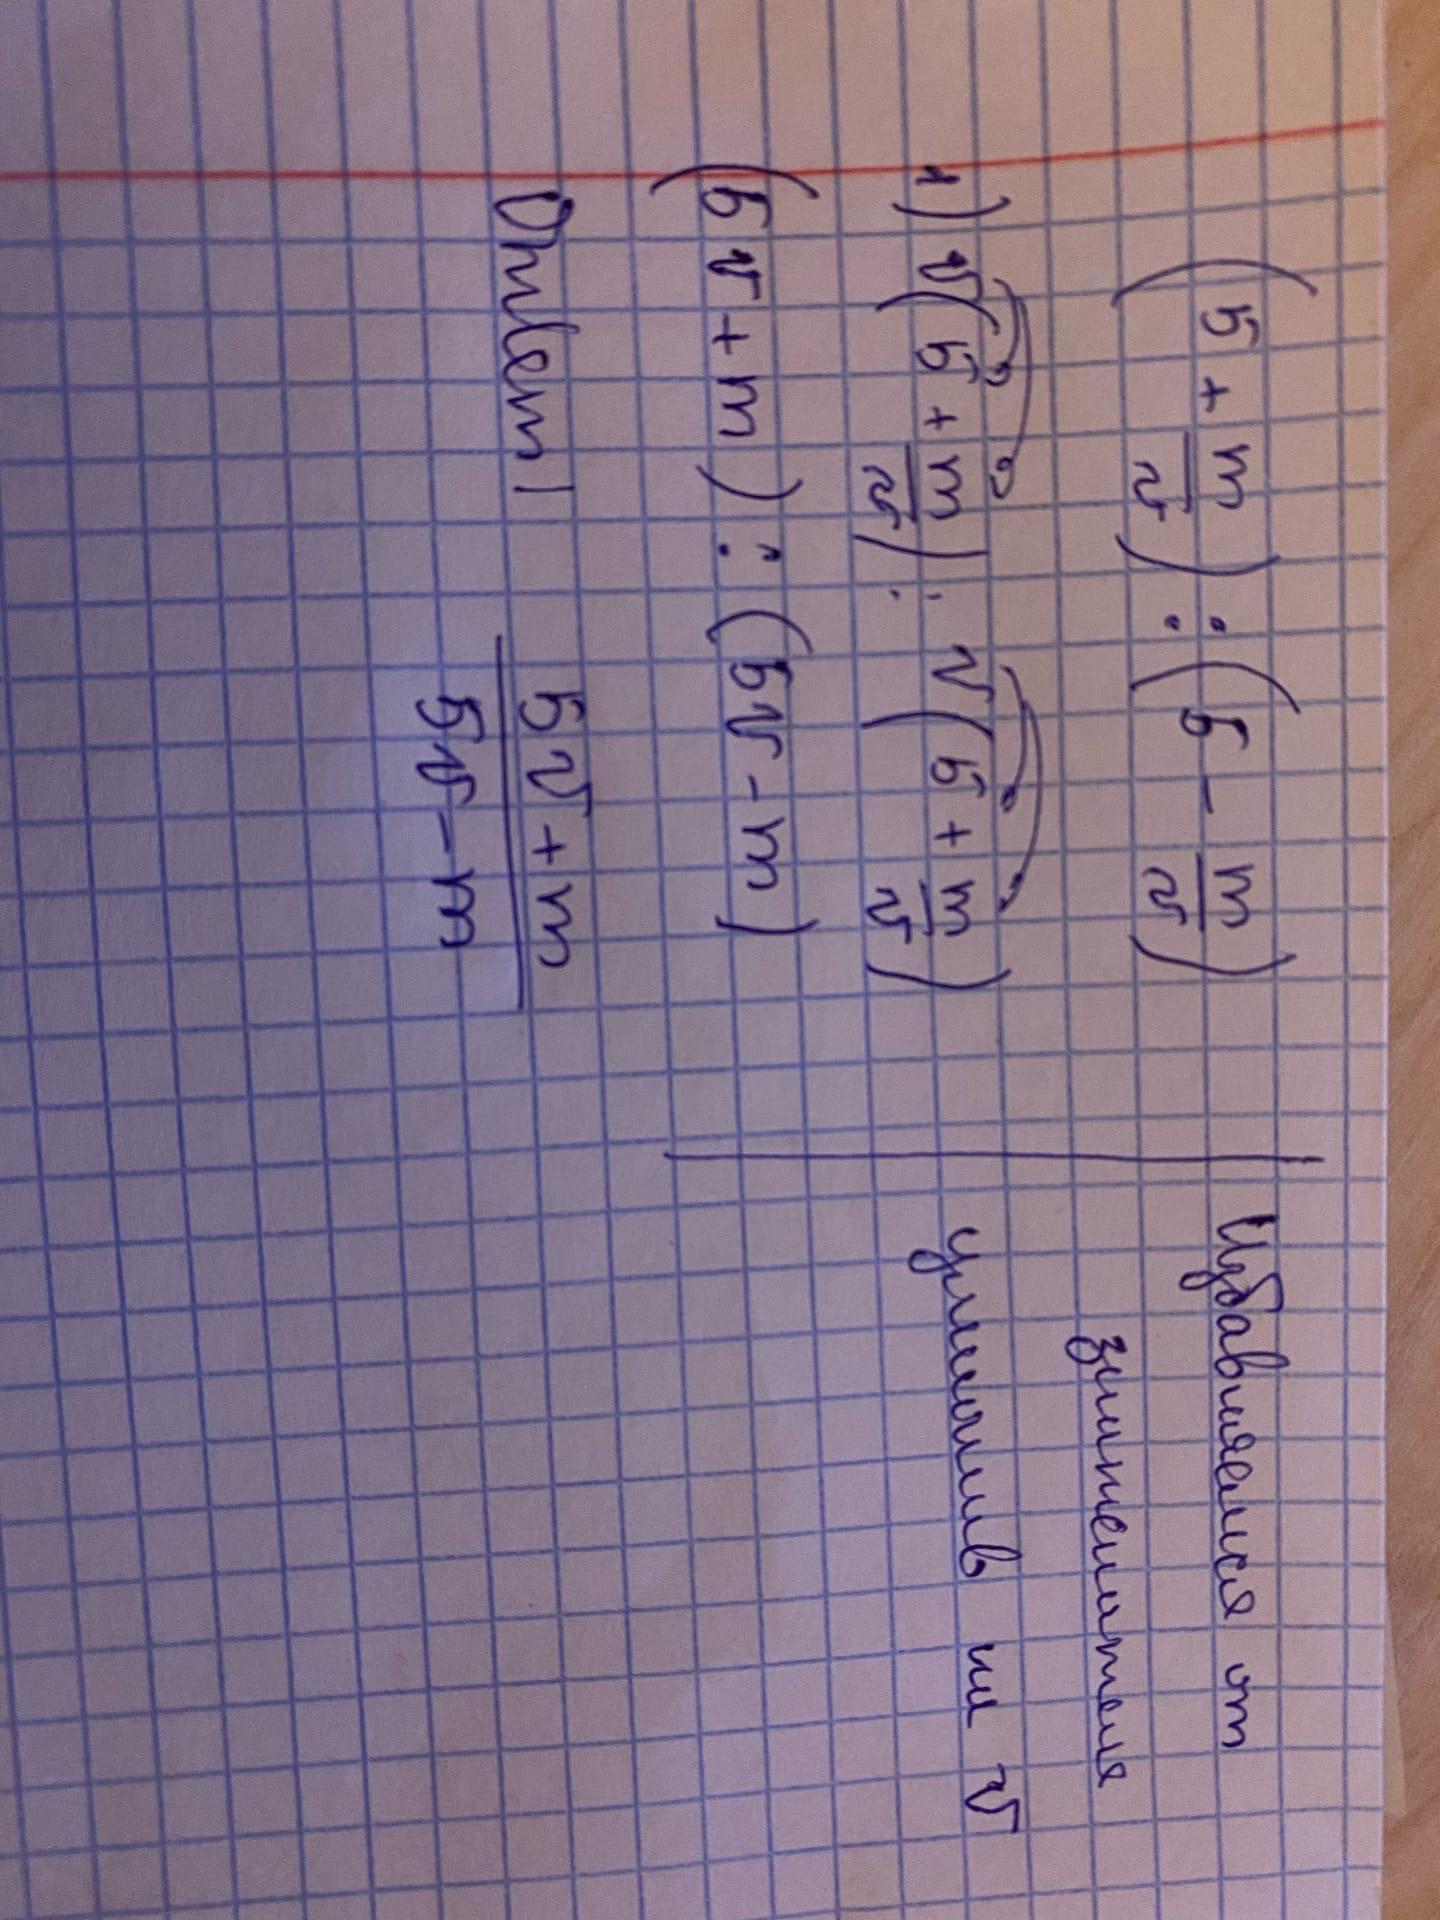 (5 + m/v) : (5 - m/v)
Избавляемся от
знаменателя
1) v(5 + m/v) : v(5 + m/v)
умножив на v
(5v + m) : (5v - m)
Ответ 5v + m / 5v - m